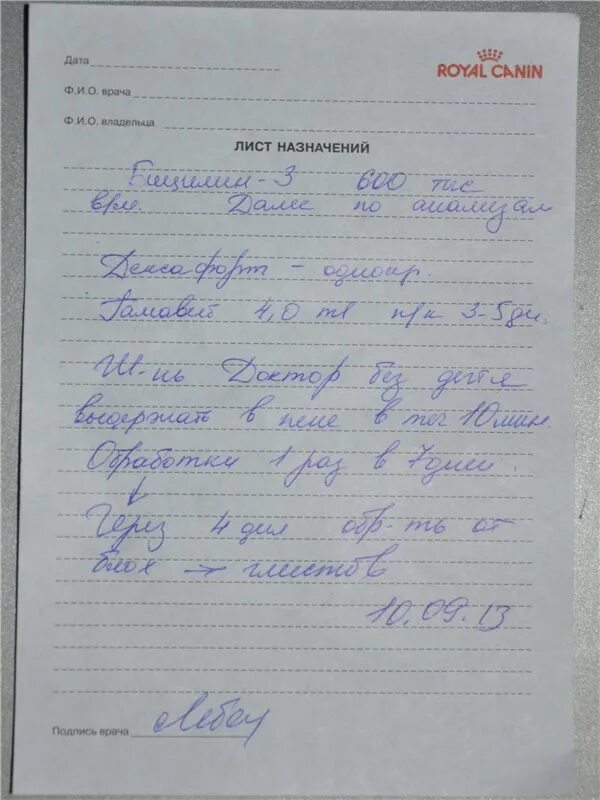 Дата
ROYAL CANIN
Ф.И.О. врача
Ф.И.О. владельца
ЛИСТ НАЗНАЧЕНИЙ
Бициллин-3 600 тыс
в/м. Далее по анализам
Дексафорт - однокр.
Гамавит 4,0 ml п/к 3-5дн.
Ш-нь Доктор без дегтя
выдержать в пене в теч 10 мин.
Обработки 1 раз в 7дней.
↓
Через 4 дня обр-ть от
блох → глистов
10.09.13
Подпись врача